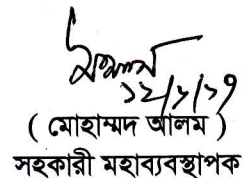 ১২/১/১৭
( মোহাম্মদ আলম )
সহকারী মহাব্যবস্থাপক